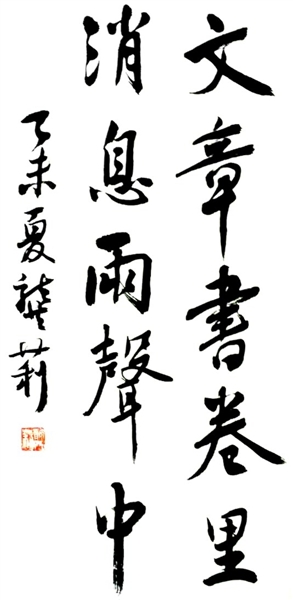 文章書卷里
消息雨聲中
乙未夏龔莉